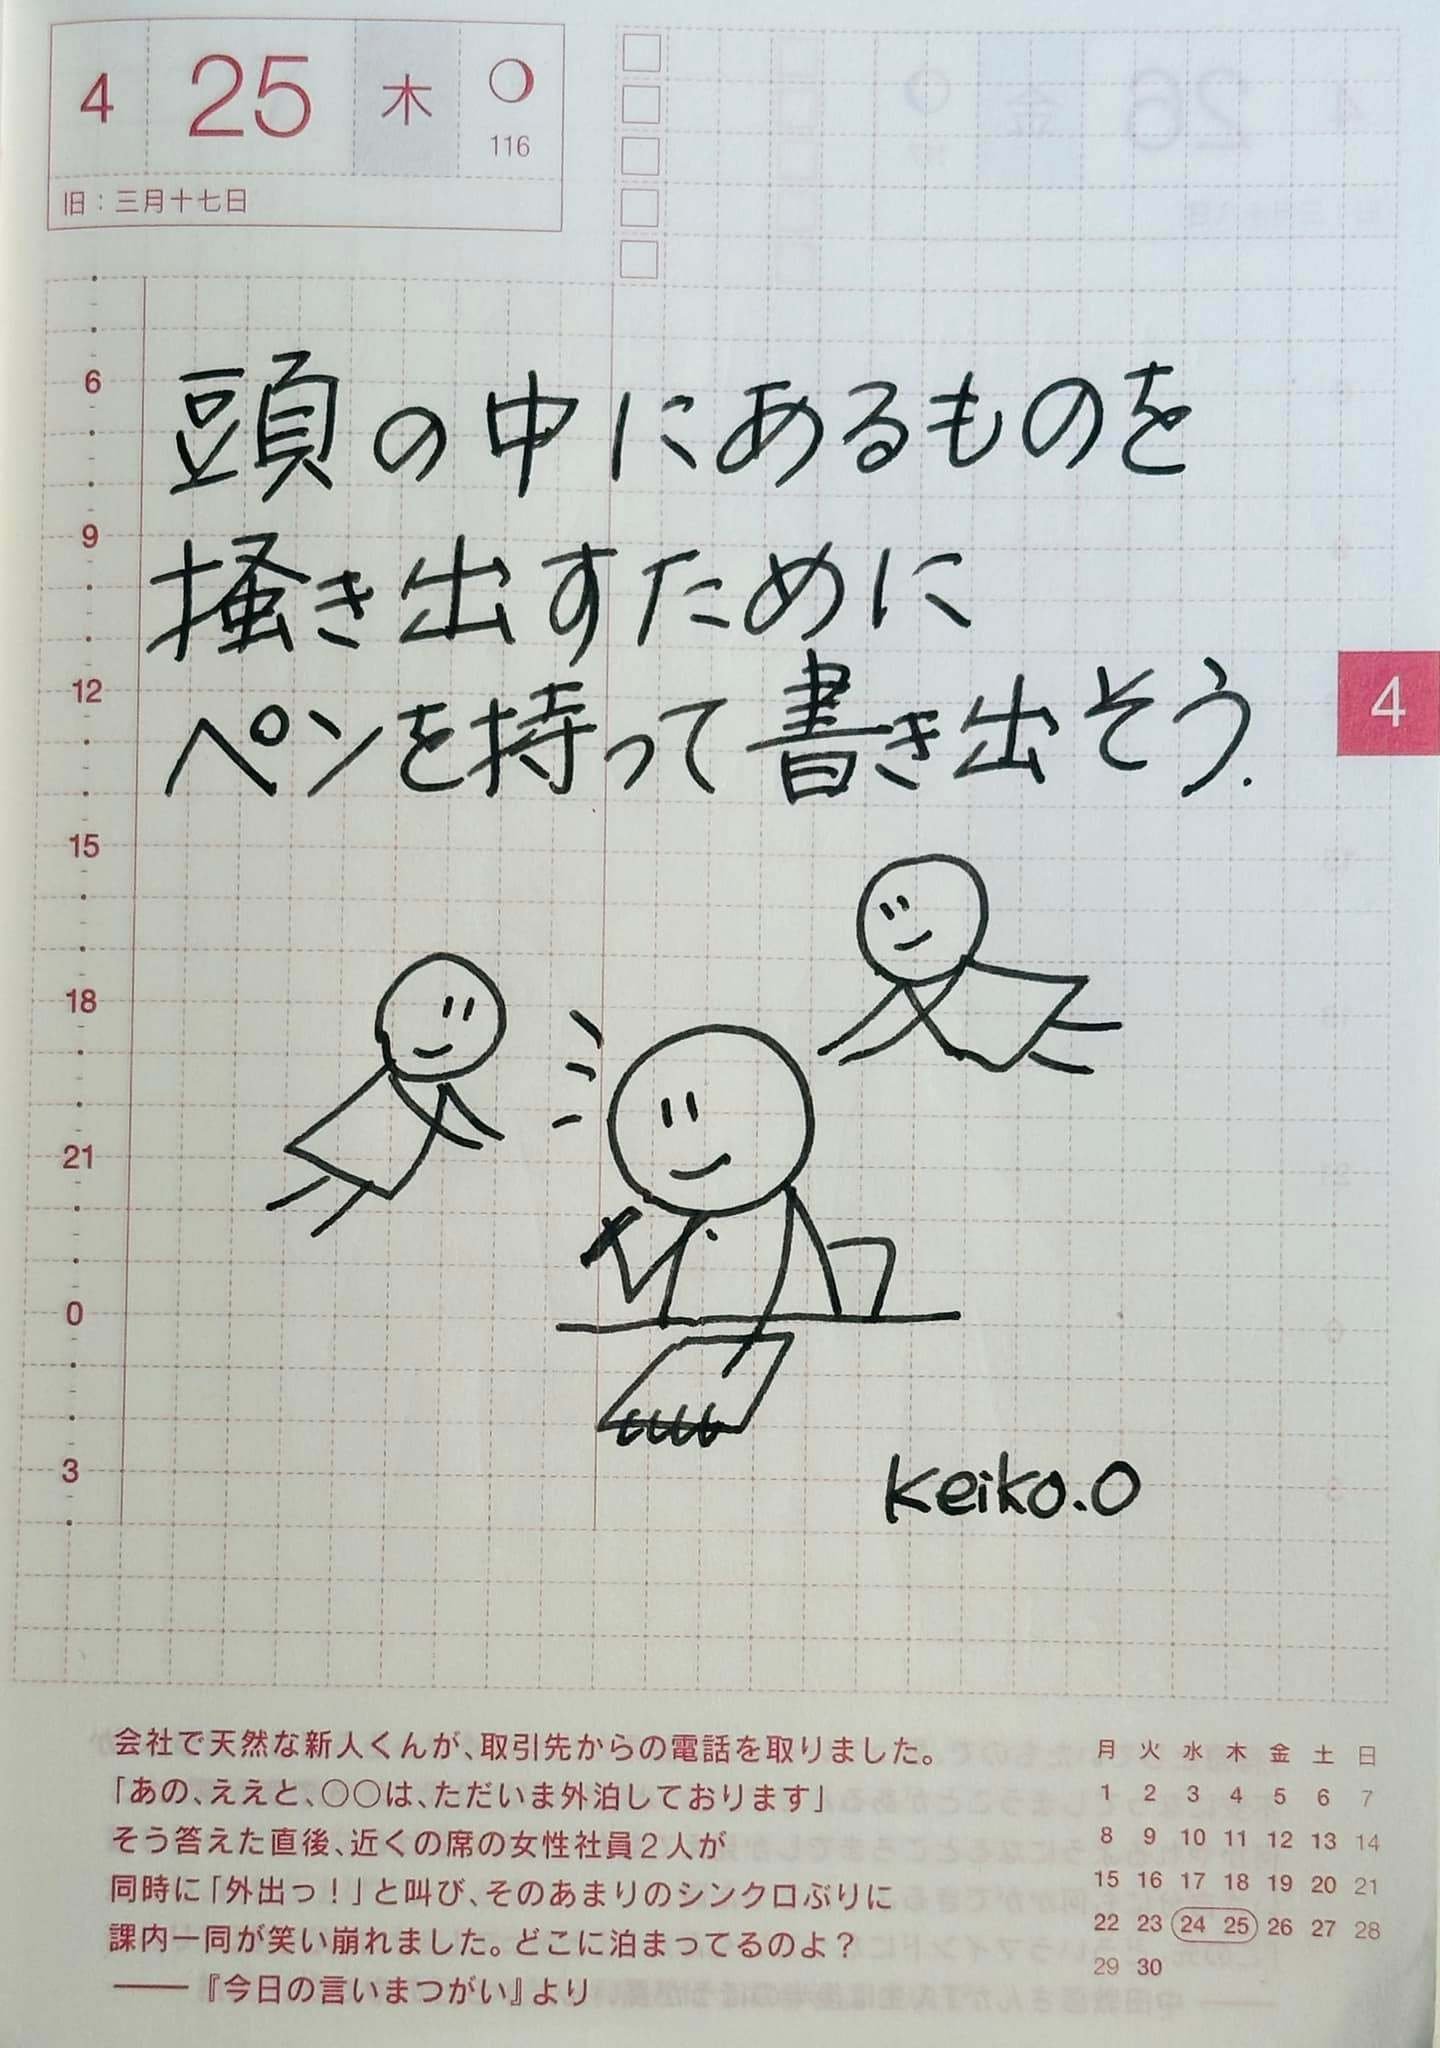 4 25 木
116
旧：三月十七日
頭の中にあるものを
掻き出すために
ペンを持って書き出そう.
6
9
12
15
18
21
0
3
4
Keiko.O
会社で天然な新人くんが、取引先からの電話を取りました。
「あの、ええと、〇〇は、ただいま外泊しております」
そう答えた直後、近くの席の女性社員2人が
同時に「外出っ！」と叫び、そのあまりのシンクロぶりに
課内一同が笑い崩れました。どこに泊まってるのよ？
——『今日の言いまつがい』より
月 火 水 木 金 土 日
1 2 3 4 5 6 7
8 9 10 11 12 13 14
15 16 17 18 19 20 21
22 23 24 25 26 27 28
29 30